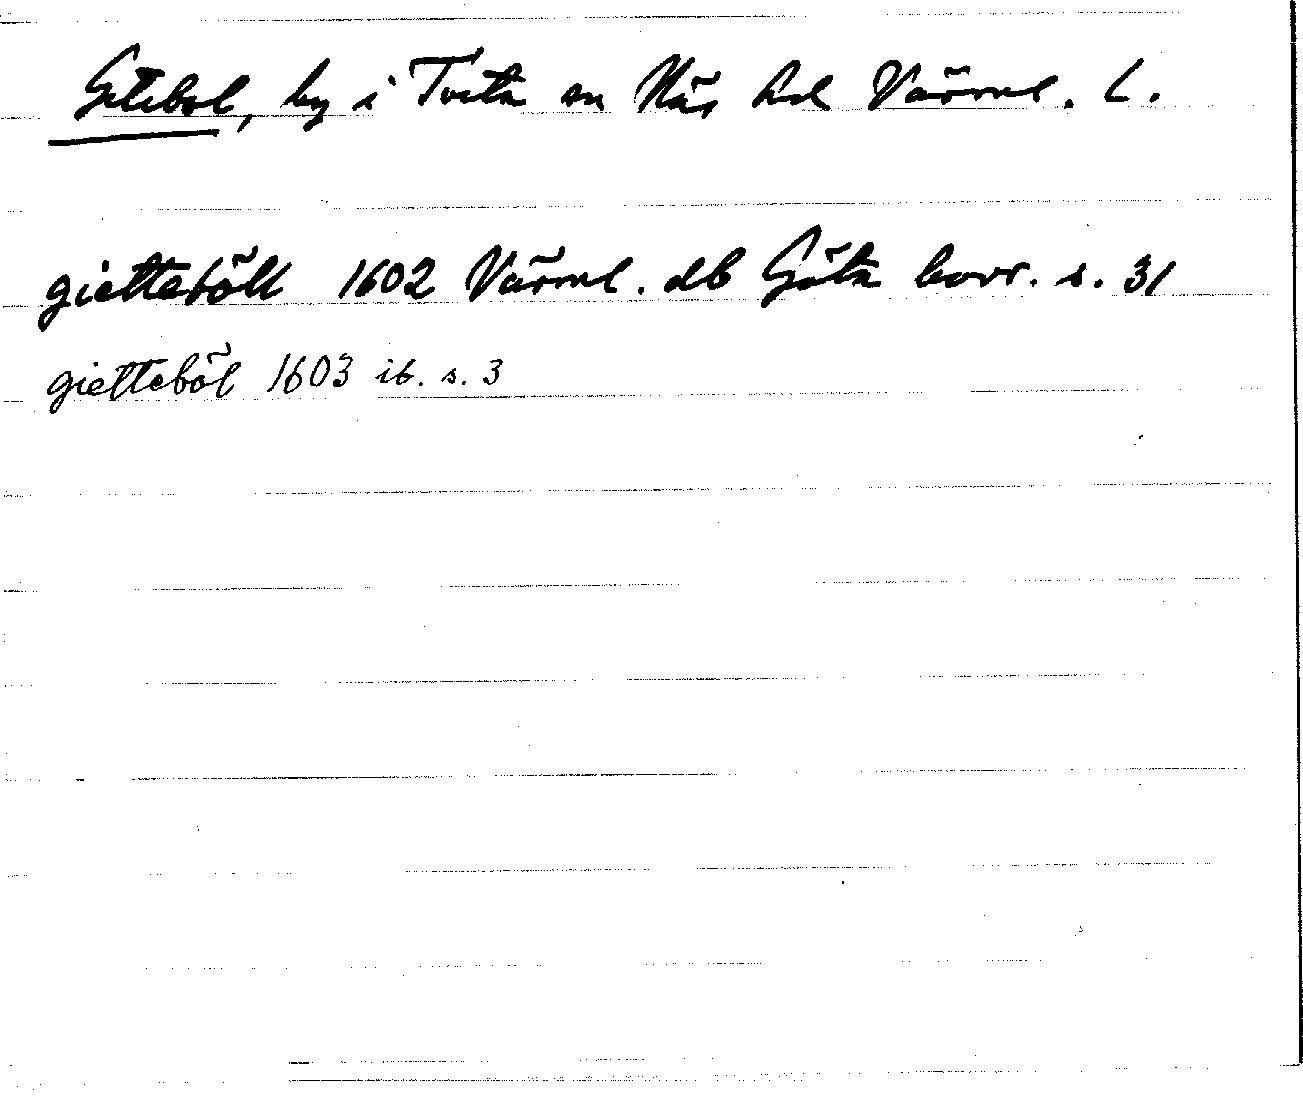 Getebol, by i Tveta sn Näs hd Värml. L.
gietteböll 1602 Värml. db Göta hovr. s. 31
gietteböl 1603 ib. s. 3